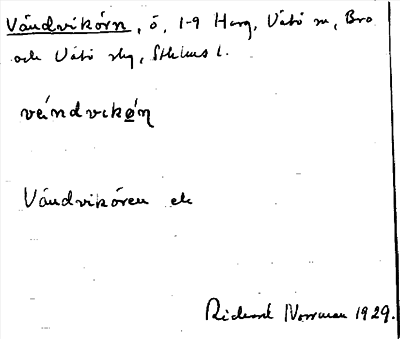 Våndvikörn, ö, 1-9 Harg, Vätö sn, Bro
och Vätö skg, Sthlms l.
vǻndvikø̀ɳ
Våndvikören ek
Richard Norrman 1929.